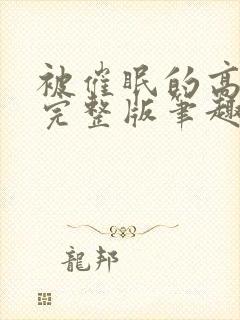 被催眠的高
完整版笔趣
龍邦